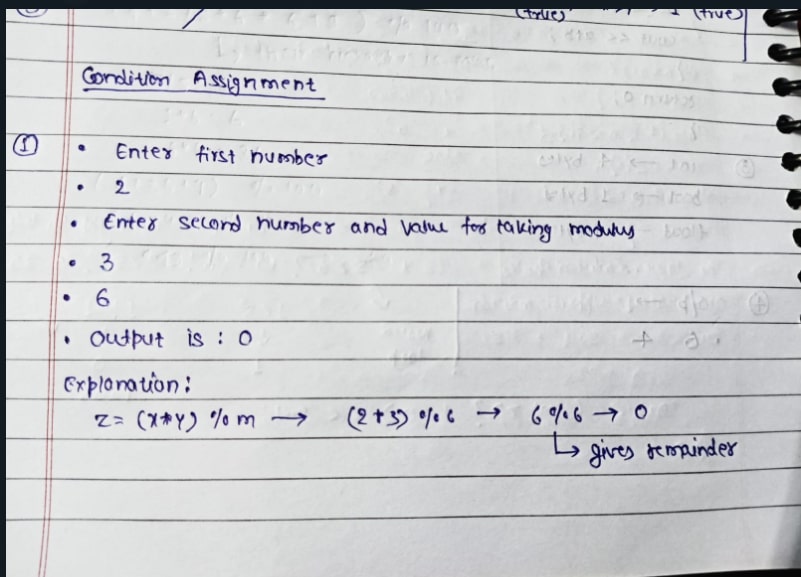 (true) 1 (true)
Condition Assignment
① • Enter first number
• 2
• Enter second number and value for taking modulus
• 3
• 6
• Output is : 0
Explanation:
z = (x*y) % m → (2*3) % 6 → 6 % 6 → 0
↳ gives remainder